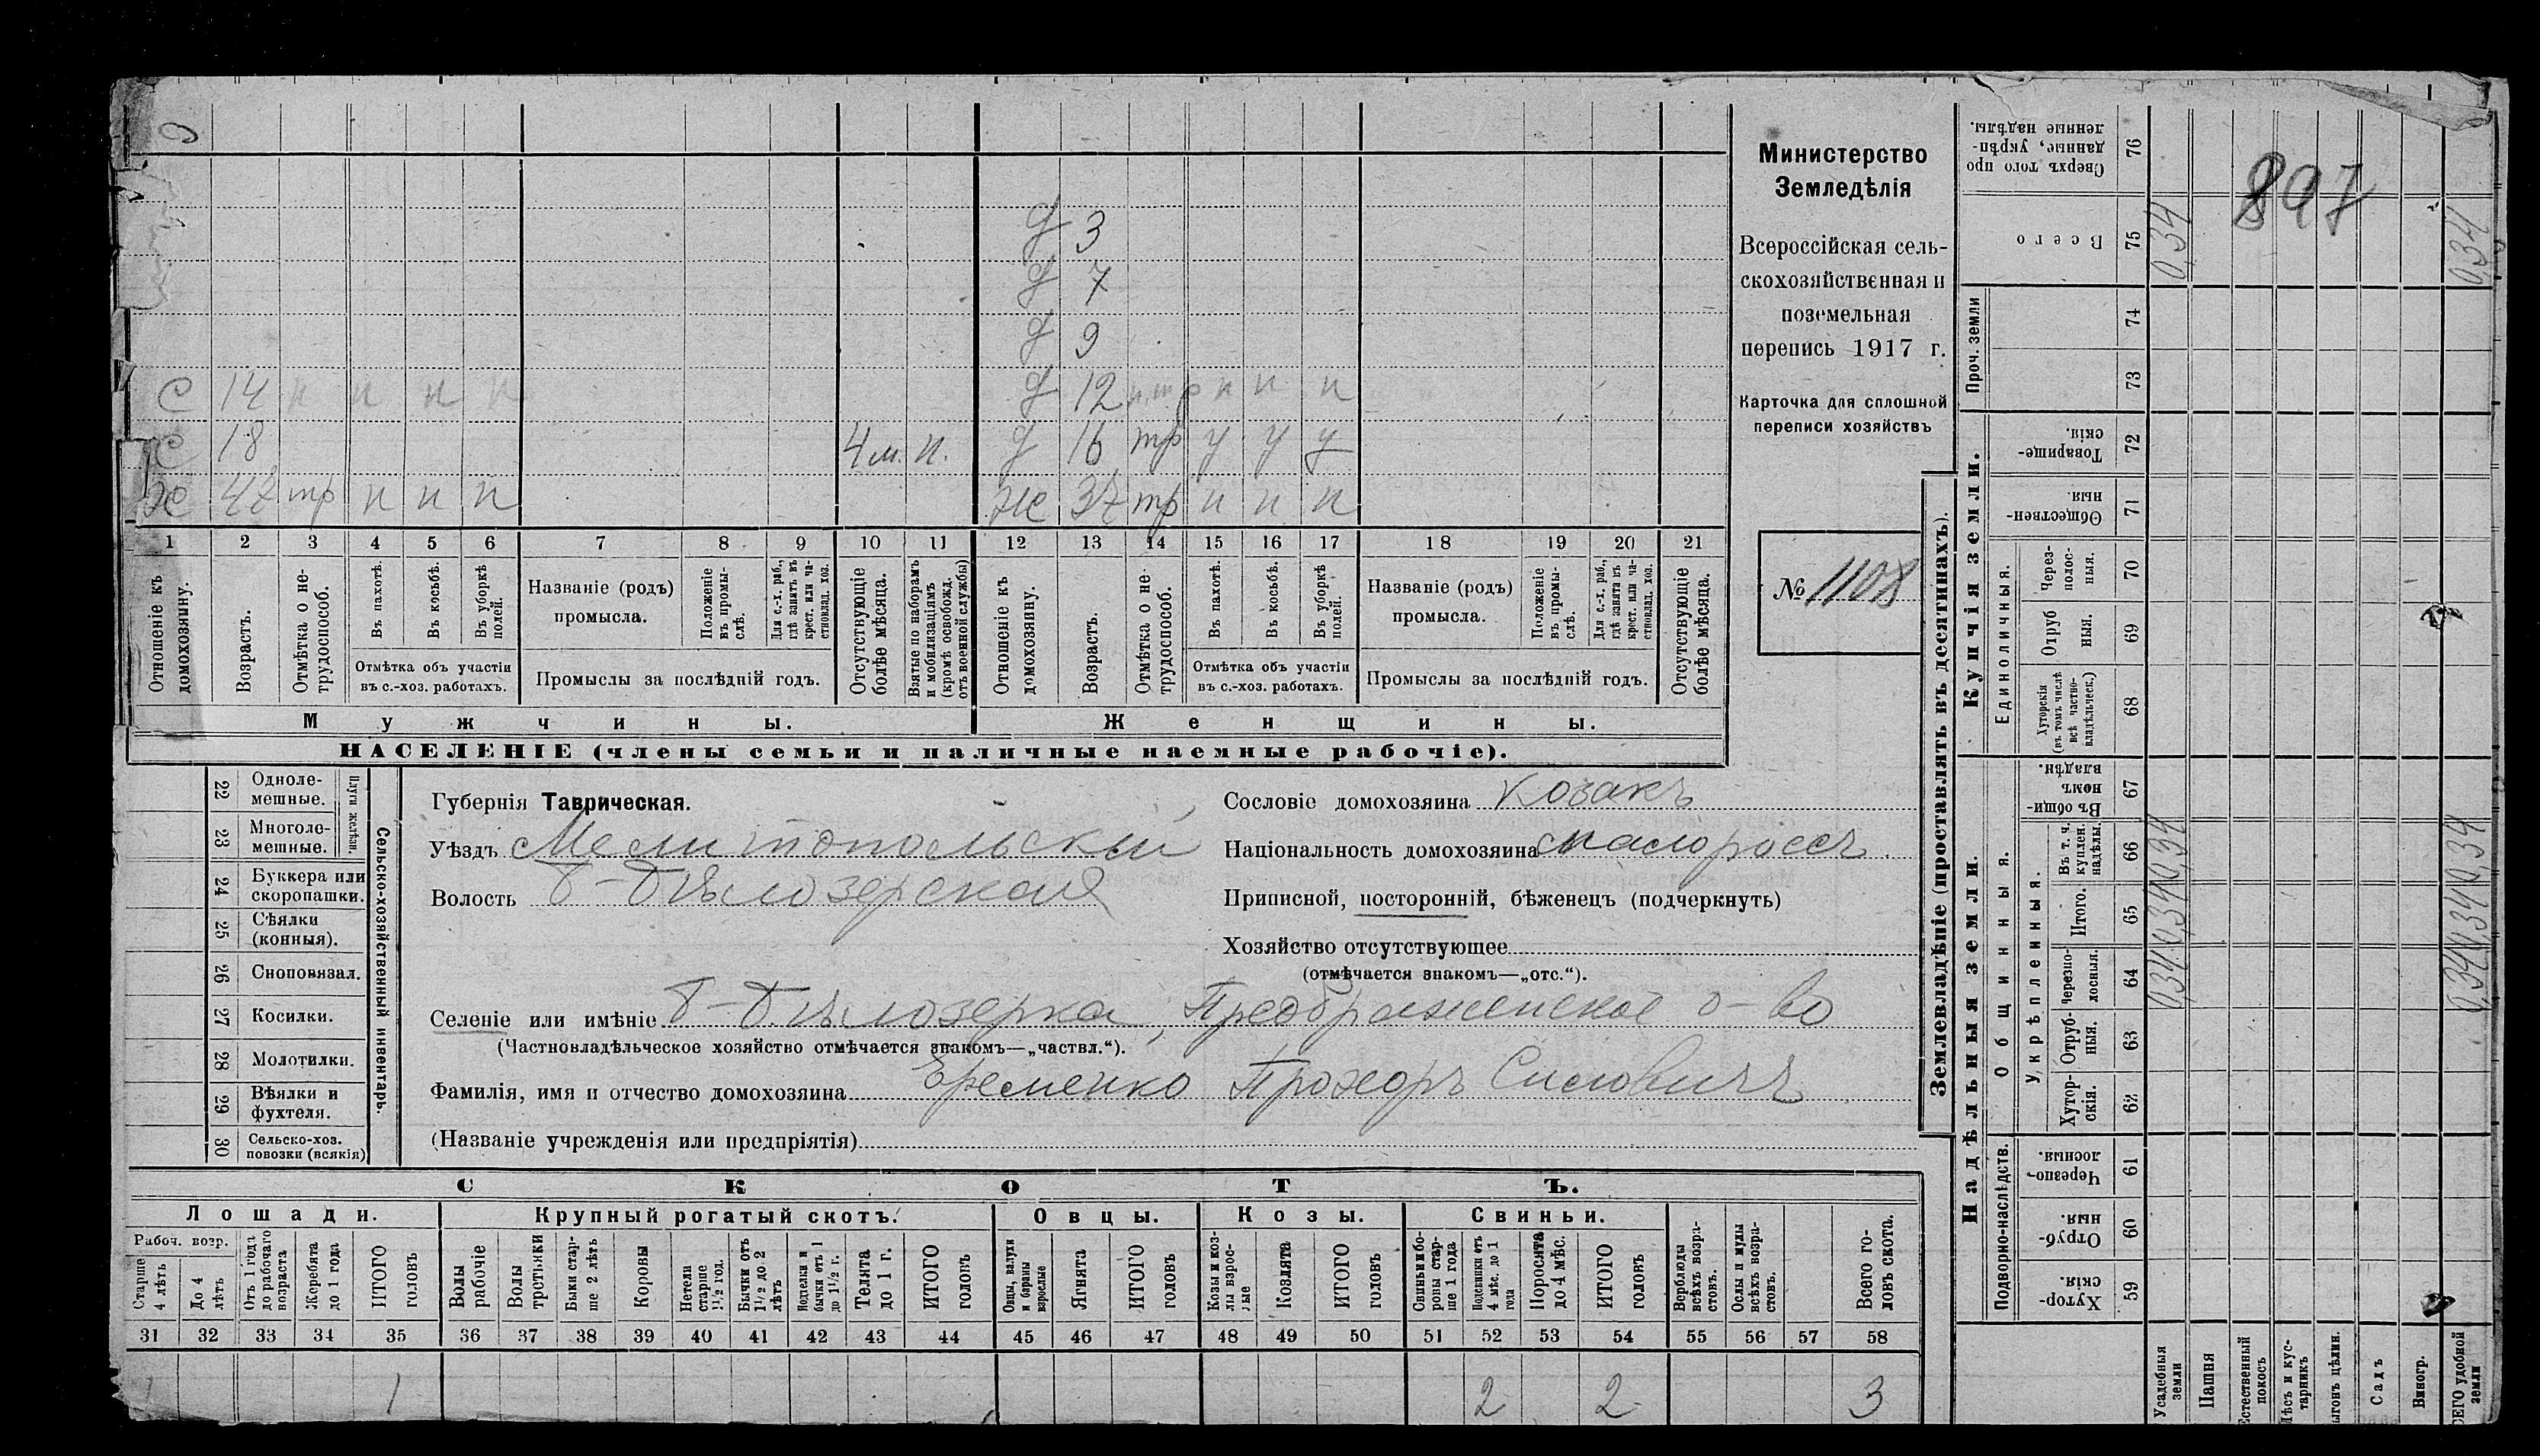 897
Министерство
Земледѣлія
Всероссійская сель-
скохозяйственная и
поземельная
перепись 1917 г.
Карточка для сплошной
переписи хозяйствъ
№ 1108
д 3
д 7
д 9
с 14 н п п п д 12 п. тр п п п
с 18 4 м. п. д 16 тр у у у
х 47 тр п п п ж 37 тр п п п
1 2 3 4 5 6 7 8 9 10 11 12 13 14 15 16 17 18 19 20 21
Отношеніе къ домохозяину.
Возрастъ.
Отмѣтка о не-трудоспособ.
Въ пахотѣ.
Въ косьбѣ.
Въ уборкѣ полей.
Отмѣтка объ участіи
въ с.-хоз. работахъ.
Названіе (родъ)
промысла.
Положеніе въ промы-слѣ.
Для с.-х. раб., гдѣ занятъ въ крест. или ча-стновлад. хоз.
Промыслы за послѣдній годъ.
Отсутствующіе болѣе мѣсяца.
Взятые по наборамъ и мобилизаціямъ (кромѣ освобожд. отъ военной службы)
Отношеніе къ домохозяину.
Возрастъ.
Отмѣтка о не-трудоспособ.
Въ пахотѣ.
Въ косьбѣ.
Въ уборкѣ полей.
Отмѣтка объ участіи
въ с.-хоз. работахъ.
Названіе (родъ)
промысла.
Положеніе въ промы-слѣ.
Для с.-х. раб., гдѣ занята въ крест. или ча-стновлад. хоз.
Промыслы за послѣдній годъ.
Отсутствующіе болѣе мѣсяца.
Мужчины. Женщины.
НАСЕЛЕНІЕ (члены семьи и наличные наемные рабочіе).
22 Одноле-мешные.
23 Многоле-мешные.
Плуги желѣзн.
24 Буккера или скоропашки.
25 Сѣялки (конныя).
26 Сноповязал.
27 Косилки.
28 Молотилки.
29 Вѣялки и фухтеля.
30 Сельско-хоз. повозки (всякія)
Сельско-хозяйственный инвентарь.
Губернія Таврическая.
Уѣздъ Мелитопольскій
Волость Б-Бѣлозерская
Сословіе домохозяина козакъ
Національность домохозяина малороссъ
Приписной, посторонній, бѣженецъ (подчеркнуть)
Хозяйство отсутствующее
(отмѣчается знакомъ—„отс.“).
Селеніе или имѣніе Б-Бѣлозерка, Преображенское о-во
(Частновладѣльческое хозяйство отмѣчается знакомъ—„частвл.“).
Фамилія, имя и отчество домохозяина Еременко Прохоръ Сисовичъ
(Названіе учрежденія или предпріятія)
СКОТЪ.
Лошади. Крупный рогатый скотъ. Овцы. Козы. Свиньи.
Рабоч. возр.
Старше 4 лѣтъ
До 4 лѣтъ
Отъ 1 года до рабочаго возраста
Жеребята до 1 года
ИТОГО головъ
Волы рабочіе
Волы третьяки
Быки стар-ше 2 лѣтъ
Коровы
Нетели старше 1½ год.
Бычки отъ 1½ до 2 лѣтъ
Телки и бычки отъ 1 до 1½ г.
Телята до 1 г.
ИТОГО головъ
Овцы, валухи и бараны взрослые
Ягнята
ИТОГО головъ
Козы и коз-лы взрос-лые
Козлята
ИТОГО головъ
Свиньи и бо-ровы стар-ше 1 года
Подсвинки отъ 4 мѣс. до 1 года
Поросята до 4 мѣс.
ИТОГО головъ
Верблюды всѣхъ возра-стовъ.
Ослы и мулы всѣхъ возра-стовъ.
Всего го-ловъ скота.
31 32 33 34 35 36 37 38 39 40 41 42 43 44 45 46 47 48 49 50 51 52 53 54 55 56 57 58
1 2 2 3
Землевладѣніе (проставлять въ десятинахъ).
Надѣльныя земли. Купчія земли. Проч. земли
Подворно-наслѣдств.
Общинныя.
Укрѣпленныя.
Единоличныя.
Хутор-скія. 59
Отруб-ныя. 60
Черезпо-лосныя. 61
Хутор-скія. 62
Отруб-ныя. 63
Черезпо-лосныя. 64
Итого. 65
Въ т. ч. куплен. надѣлы. 66
Въ общи-номъ владѣн. 67
Хуторскія (въ томъ числѣ всѣ частно-владѣльческ.) 68
Отруб ныя. 69
Через-полос-ныя. 70
Обществен-ныя. 71
Товарище-скія. 72
73
74
Всего 75
Сверхъ того про данные, укрѣп-ленные надѣлы. 76
Усадебныя земли 0,34 0,34 0,34 0,34
Пашня
Естественный покосъ
Лѣсъ и кус-тарникъ
Выгонъ цѣлин.
Садъ
Виногр.
ВСЕГО удобной земли 0,34 0,34 0,34 0,34